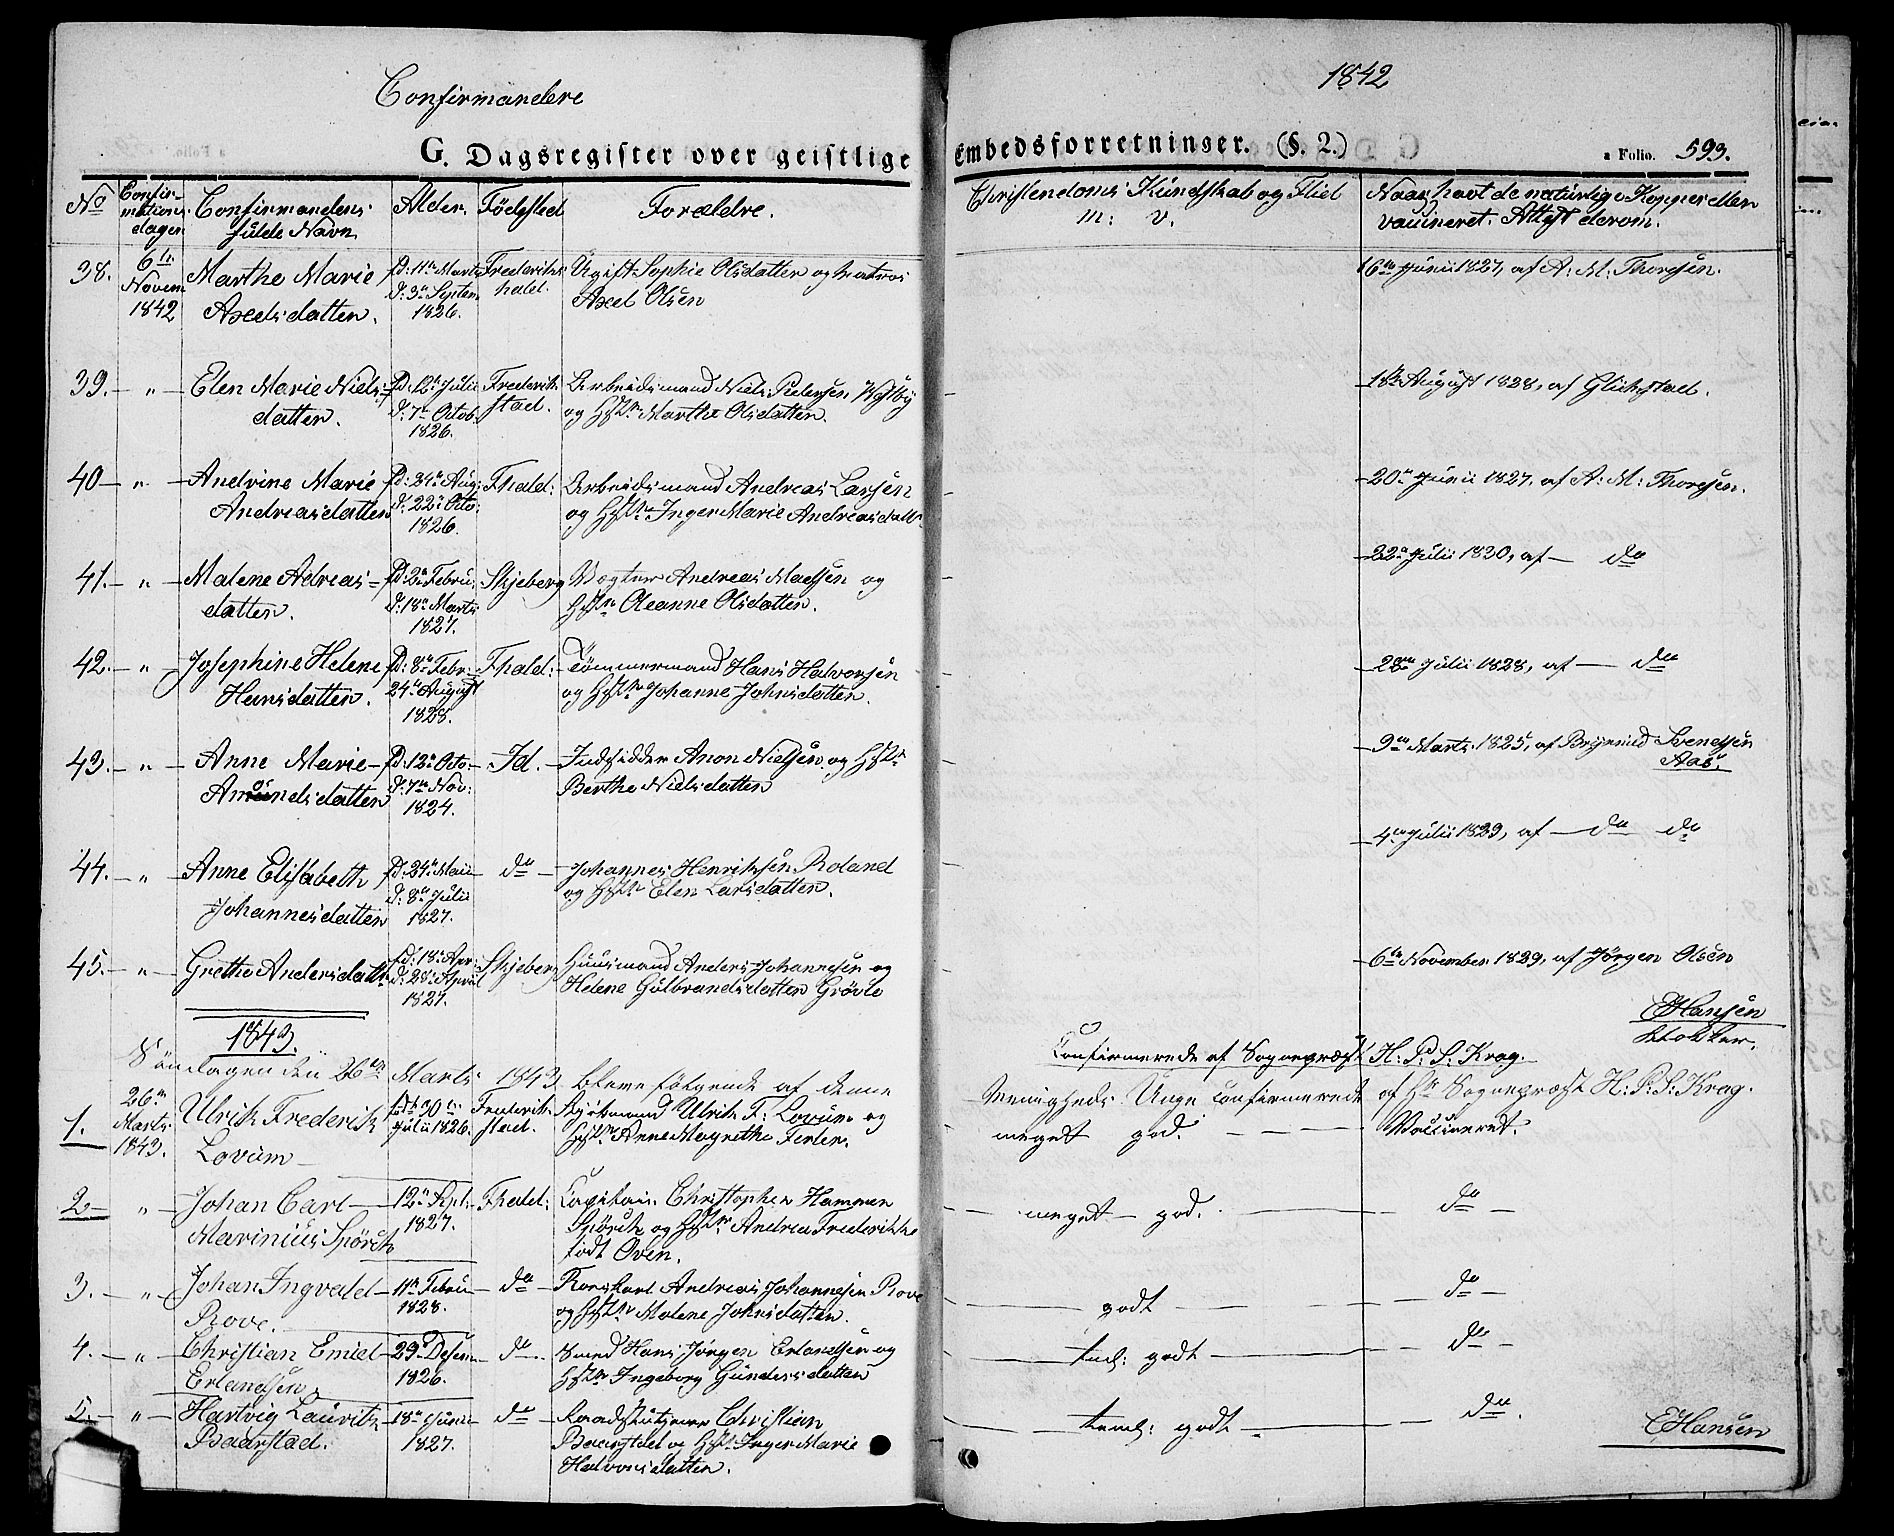 Confirmandere
1842
G. Dagsregister over geistlige Embedsforretninger. (§. 2.)
a Folio. 593.
No
Confirmations dagen
Confirmandens fulde Navn
Alder.
Fødested
Forældre.
Christendoms Kundskab og Flid
m: v.
Naar havt de naturlige Kopper eller
vaccineret. Attest derom.
38.
6te Novem 1842
Marthe Marie
Axelsdatter.
fd: 11te Marts
d: 3e Septem
1826.
Frederiks
hald.
Ugift Sophie Olsdatter og Matros
Axel Olsen
16de Junii 1827, af A. M. Thoresen.
39. — " —
Elen Marie Niels
datter.
fd: 12te Julii
d: 7de Octob.
1826.
Frederik
stad.
Arbeidsmand Niels Pedersen
og Hstr: Marthe Olsdatter.
18de August 1828, af Glükstad.
40 — " —
Andrine Marie
Andreasdatter
fd: 31te Aug:
d: 22de Octo:
1826.
Fhald:
Arbeidsmand Andreas Larsen
og Hstr Inger Marie Andreasdattr
20de Junii 1827, af A: M: Thoresen.
41. — " —
Malene Adreas=
datter.
fd: 2de Febru.
d: 18de Marts
1827.
Skjeberg
Vægter Andreas Madsen og
Hstr Oleanne Olsdatter.
22de Julii 1830, af — do
42. — " —
Josephine Helene
Hansdatter.
fd: 8de Febr:
24de August
1828.
Fhald:
Tømmermand Hans Halvorsen
og Hstr Johanne Johnsdatter.
28de Julii 1828, af — do
43. — " —
Anne Marie
Amundsdatter
fd: 12te Octo
d: 7de Nov:
1824.
Id.
Indsidder Amon Nielsen og Hstr
Berthe Nielsdatter
9de Marts 1825, af Brynild Svendsen
Aas.
44. — " —
Anne Elisabeth
Johannesdatter
fd: 24de Maii
d: 8de Julii
1827.
do
Johannes Henriksen Roland
og Hstr Elen Larsdatter.
4de Julii 1829, af — do do
45. — " —
Grethe Andersdattr
fd: 18de Apr:
d: 28de April
1827.
Skjeberg
Huusmand Anders Johannesen og
Helene Gulbrandsdatter
6te November 1829, af Jörgen Olsen
EHansen
klokker.
1843.
Confirmerede af Sognepræst H. P. S. Krag.
Søndagen den 26de Marts 1843, bleve følgende af denne
Menigheds Unge confirmerede af Hr Sognepræst H: P: S: Krag.
1.
26de Marts 1843.
Ulrik Frederik
Lovum
fdt 30te
Julii 1826.
Frederik
stad.
Ulrik F: Lovum og
Hstr Anne Magrethe
meget god.
Vaccineret.
2 — " —
Johan Carl
Marinius Spörck
12te Spt:
1827.
Fhald:
Capitain Christopher Hammer
Spörck og Hstr Andrea Frederikke
født Oven.
meget god.
do
3. — " —
Johan Ingvald
Rove.
11te Febru
1828.
do
Andreas Johannesen Rove
og Hstr Malene Johnsdatter.
godt
do
4. — " —
Christian Emiel
Erlandsen
29de Desem
1826.
do
Smed Hans Jørgen Erlandsen og
Hstr Ingeborg Gundersdatter
teml: godt
do
5. — " —
Hartvig Lauritz
Baarstad.
18de Junii
1827.
do
Raadstutjener Christian
Baarstad og Hstr Inger Marie
Halvorsdatter.
teml: godt
do
EHansen